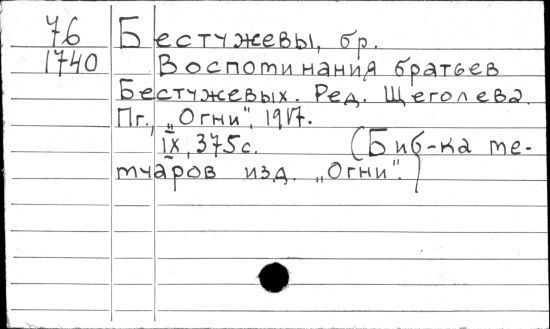 76 Бестужевы, бр.
1740 Воспоминания братьев
Бестужевых. Ред. Щеголева.
Пг., „Огни", 1917.
IX, 375 с. (Биб-ка ме-
муаров изд. „Огни".)